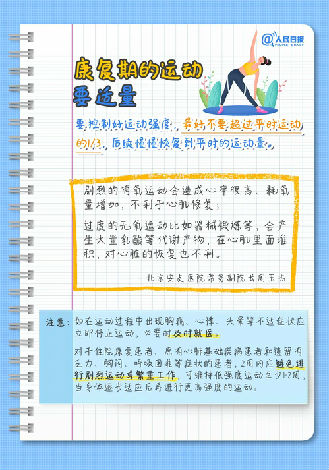 @人民日报
康复期的运动
要适量
要控制好运动强度,最好不要超过平时运动
的1/3,后续慢慢恢复到平时的运动量。
剧烈的有氧运动会造成心率很高、耗氧
量增加,不利于心肌修复;
过度的无氧运动比如器械锻炼等,会产
生大量乳酸等代谢产物,在心肌里面堆
积,对心脏的恢复也不利。
北京安贞医院常务副院长周玉杰
注意:如在运动过程中出现胸痛、心悸、头晕等不适症状应
立即停止运动,必要时及时就医。
对于住院康复患者、原有心肺基础疾病患者和遗留有
乏力、胸闷、呼吸困难等症状的患者,2周内应避免进
行剧烈运动与繁重工作,可维持低强度运动
当身体逐步适应后再进行更高强度的运动。